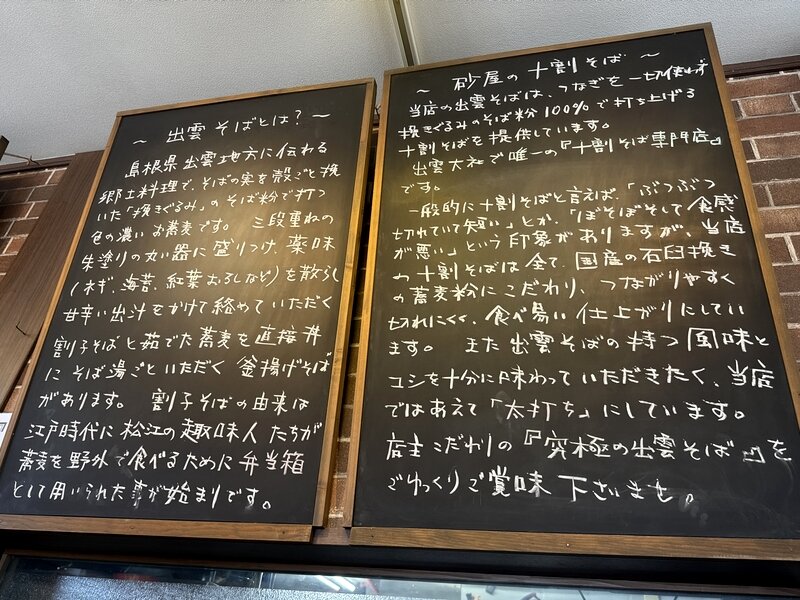 ～ 出雲そばとは？～
島根県出雲地方に伝わる
郷土料理で、そばの実を殻ごと挽
いた「挽きぐるみ」のそば粉で打つ
色の濃いお蕎麦です。 三段重ねの
朱塗りの丸い器に盛りつけ、薬味
(ネギ、海苔、紅葉おろしなど)を散らし
甘辛い出汁をかけて絡めていただく
割子そばと茹でた蕎麦を直接丼
にそば湯ごといただく 釜揚げそば
があります。 割子そばの由来は
江戸時代に松江の趣味人たちが
蕎麦を野外で食べるために弁当箱
として用いられた事が始まりです。
～ 砂屋の十割そば ～
当店の出雲そばは、つなぎを一切使わず
挽きぐるみのそば粉100%で打ち上げる
十割そばを提供しています。
出雲大社で唯一の『十割そば専門店』
です。
一般的に十割そばと言えば、「ぶつぶつ
切れていて短い」とか、「ぼそぼそして食感
が悪い」という印象がありますが、当店
の十割そばは全て、国産の石臼挽き
の蕎麦粉にこだわり、つながりやすく
切れにくく、食べ易い仕上がりにしてい
ます。 また出雲そばの持つ風味と
コシを十分に味わっていただきたく、当店
ではあえて「太打ち」にしています。
店主こだわりの『究極の出雲そば』を
ごゆっくりご賞味下さいませ。